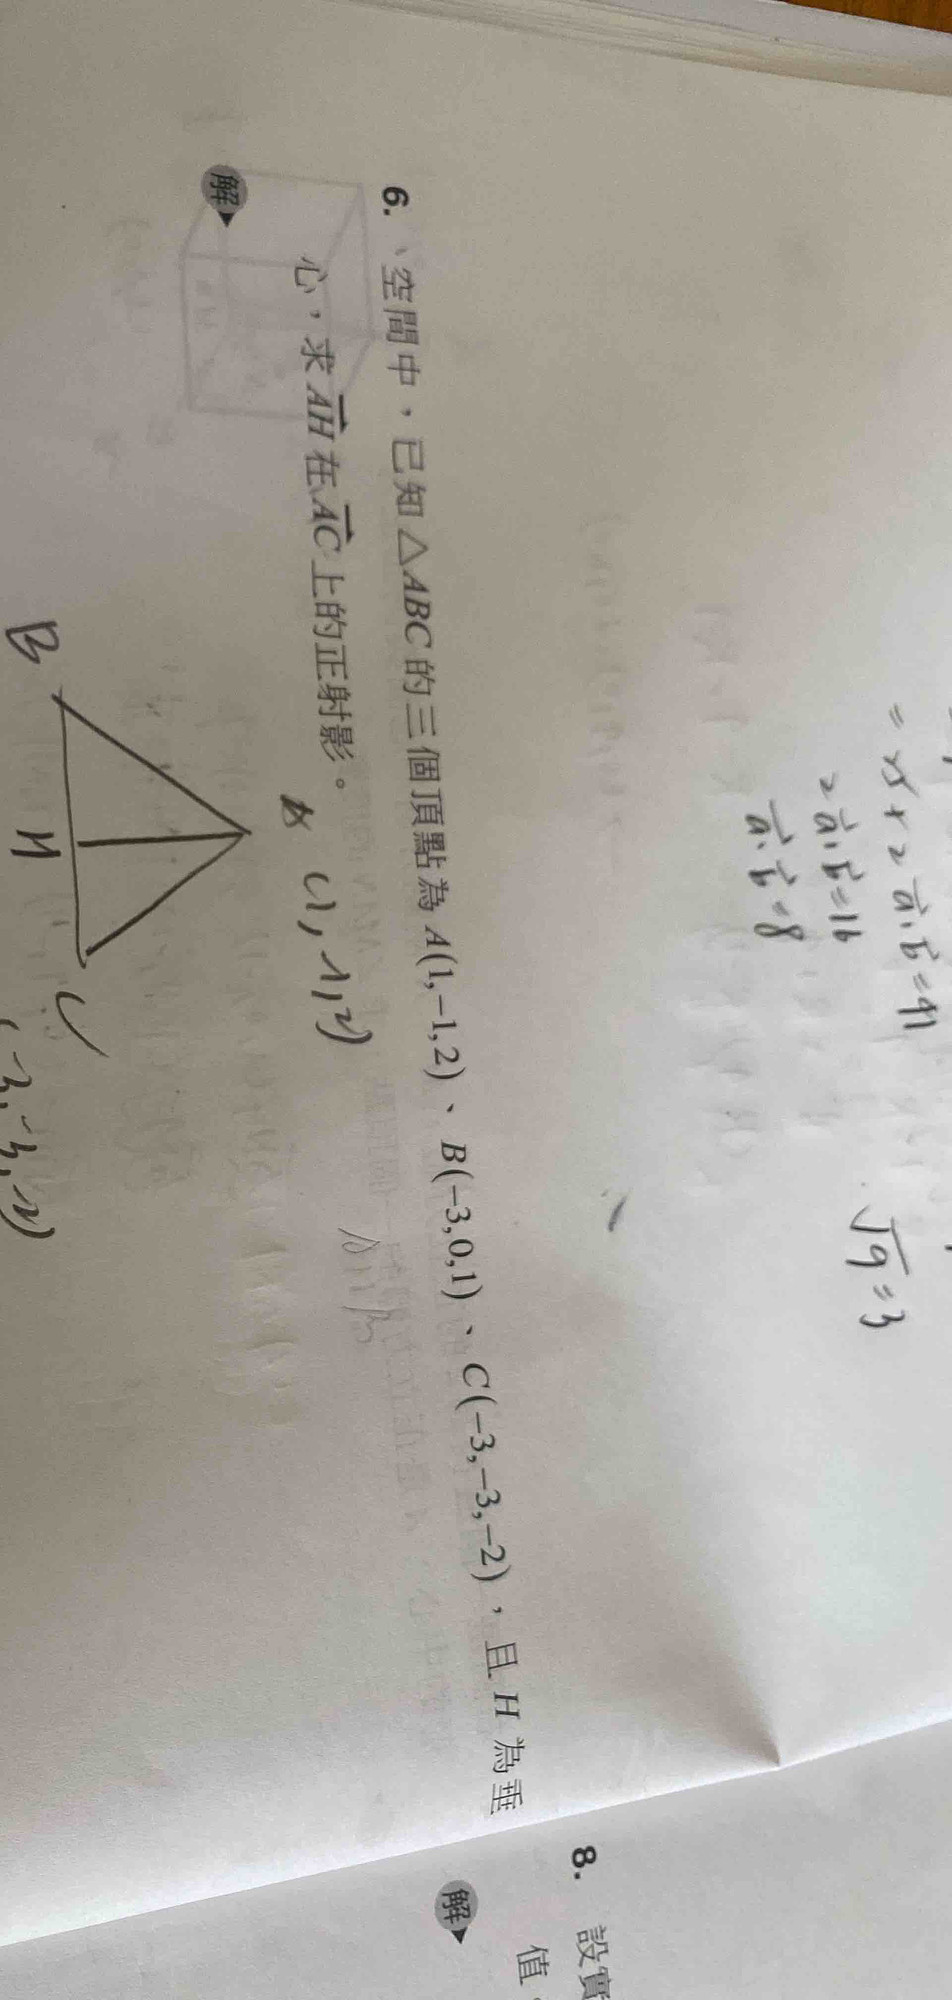 = 25 + 2a⃗·b⃗ = 41
2a⃗·b⃗ = 16
a⃗·b⃗ = 8
√9 = 3
6. 空間中，已知△ABC的三個頂點為A(1,−1,2)、B(−3,0,1)、C(−3,−3,−2)，且H為垂
心，求AH⃗在AC⃗上的正射影。
解
B
H
C
8. 設實
值
解